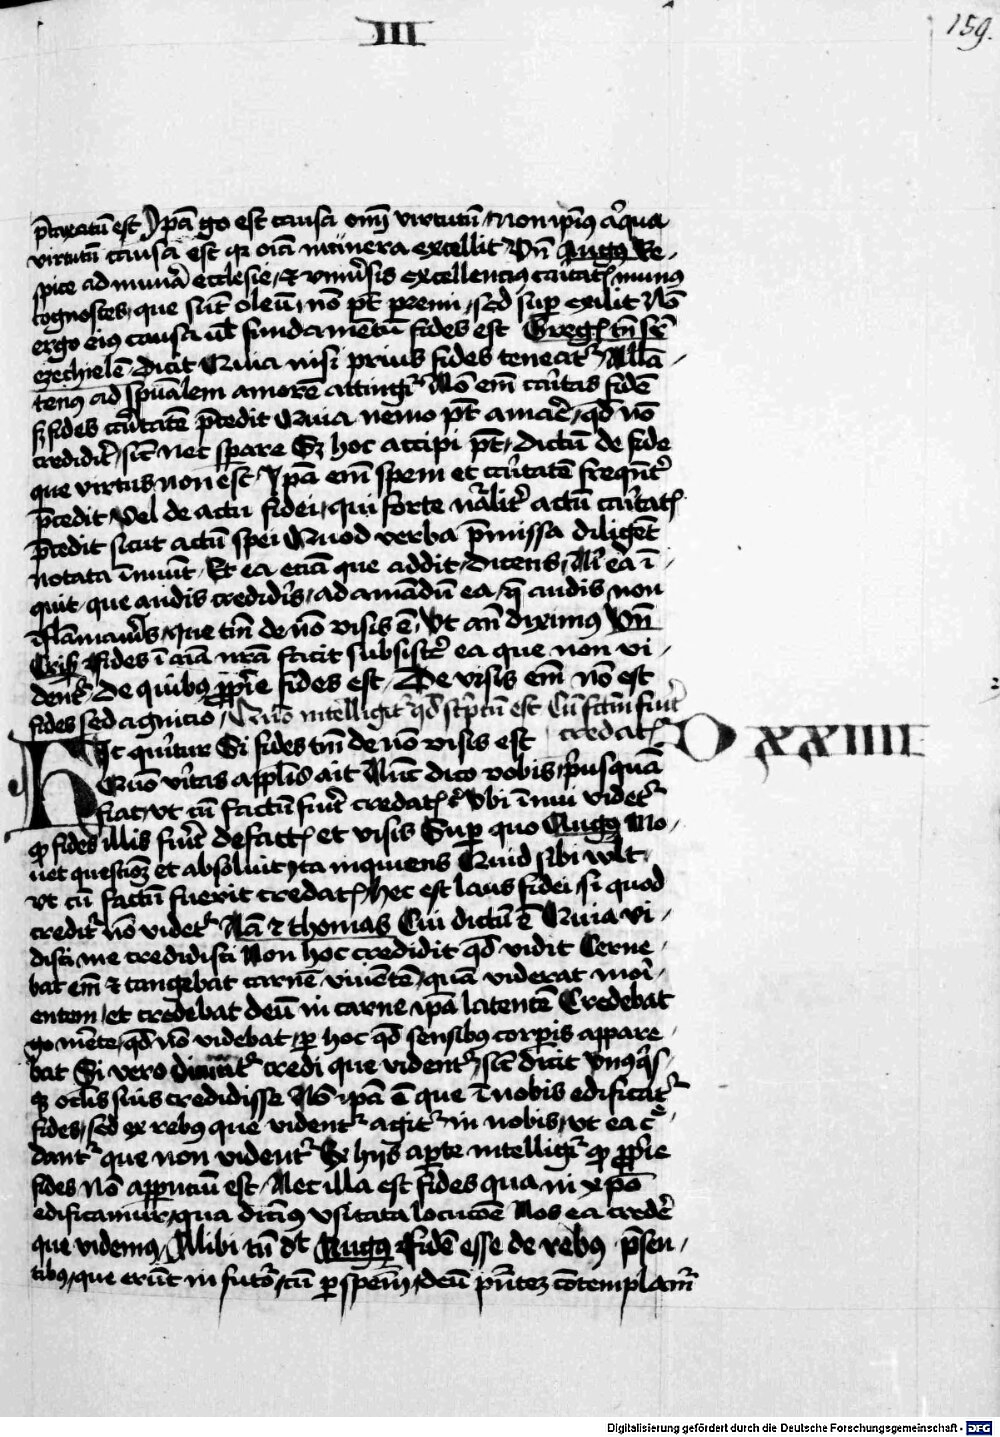 III
159.
p̄taxatū est Ipā g̊o est causa om̄j virtutū, Non ipīus aliqua
virtutū causa est qr oīā munera excellit Vn̄ Augꝰ Re,
spice ad munā ecclesie, et vniūsis excellencius caritatꝭ munus
cognosces, que sūt oleū, nō pt̄ premi, sed suꝑ exilit Nō
ergo eius causa ul̄ fundamētū fides est Gregꝰ tn̄ suꝑ
ezechielē dicit Quia nisi prius fides teneatr̄, Nullā,
tenus ad spūalem amorē attingir̄ Nō em̄ caritas fidē
sꝫ fides caritatē p̄cedit Quia nemo pt̄ amare, qd̄ nō
credidit, sic̄ nec sperare Sꝫ hoc accipi pt̄, dictū de fide
que virtus non est, Ipā em̄ spem et caritatē frequēt̄
p̄cedit, vel de actu fidei, qui forte nāliter actū caritatꝭ
p̄cedit sicut actū spei Quod verba p̄missa diligēt
notata innuūt, Et ea eciā que addit, dicens, Nisi ea ī,
quit, que audis credidīs, ad amādū ea, q̄ audis non
īflāmaūis, Que tn̄ de nō visis ē, Vt an̄ diximꝰ Vn̄
Cris Fides ī aīā nrā facit subsistere ea que non vi,
dent̄, De quibꝰ ꝓprie fides est, De visis em̄ nō est
fides sed agnicio, Quō intelligit̄ qd̄ sc̄ptū est Cū factū fuīt
credatꝭ
Hic querit̄ur Si fides tm̄ de nō visis est
D XXIIII
Quō vītas applīs ait Nūc dico vobis, p̄usquā
fiat, vt cū factū fuīt credatꝭ Vbi innui videt̄
qꝫ fides illis fuīt de factꝭ et visis Suꝑ quo Augꝰ Mo,
uet questioēꝫ et absoluit ita inquiens Quid sibi wlt,
vt cū factū fuerit credatꝭ, hec est laus fidei, si quod
credit̄ nō videt̄ Nā et thomas Cui dictū ē Quia vi,
disti me credidisti Non hoc credidit qd̄ vidit Cerne,
bat em̄ et tangebat carnē viuētē, quā viderat mori,
entem, et credebat deū in carne ipā latentē Credebat
g̊o mēte, qd̄ nō videbat, ꝑ hoc qd̄ sensibꝰ corpīs appare,
bat Si vero dicunt̄ credi que vident̄, sic̄ dicit Vnusqīs,
qꝫ oclīs suis credidisse Nō ipā ē que ī nobis edificat̄
fides, sed ex rebꝰ que vident̄ agit̄ in nobis, vt ea cre,
dant̄ que non vident̄ Ex hijs aꝑte intelligit̄ qꝫ ꝓprie
fides nō apparēciū est, Nec illa est fides qua in xp̄o
edificamur, qua dicimꝰ vsitata locucōe Nos ea credere
que videmꝰ, Alibi tn̄ dt̄ Augꝰ Fidē esse de rebꝰ p̄sen,
tibꝰ, que erūt in futuro, cū ꝑ spem, deū p̄ntem cōtemplamur
Digitalisierung gefördert durch die Deutsche Forschungsgemeinschaft - DFG